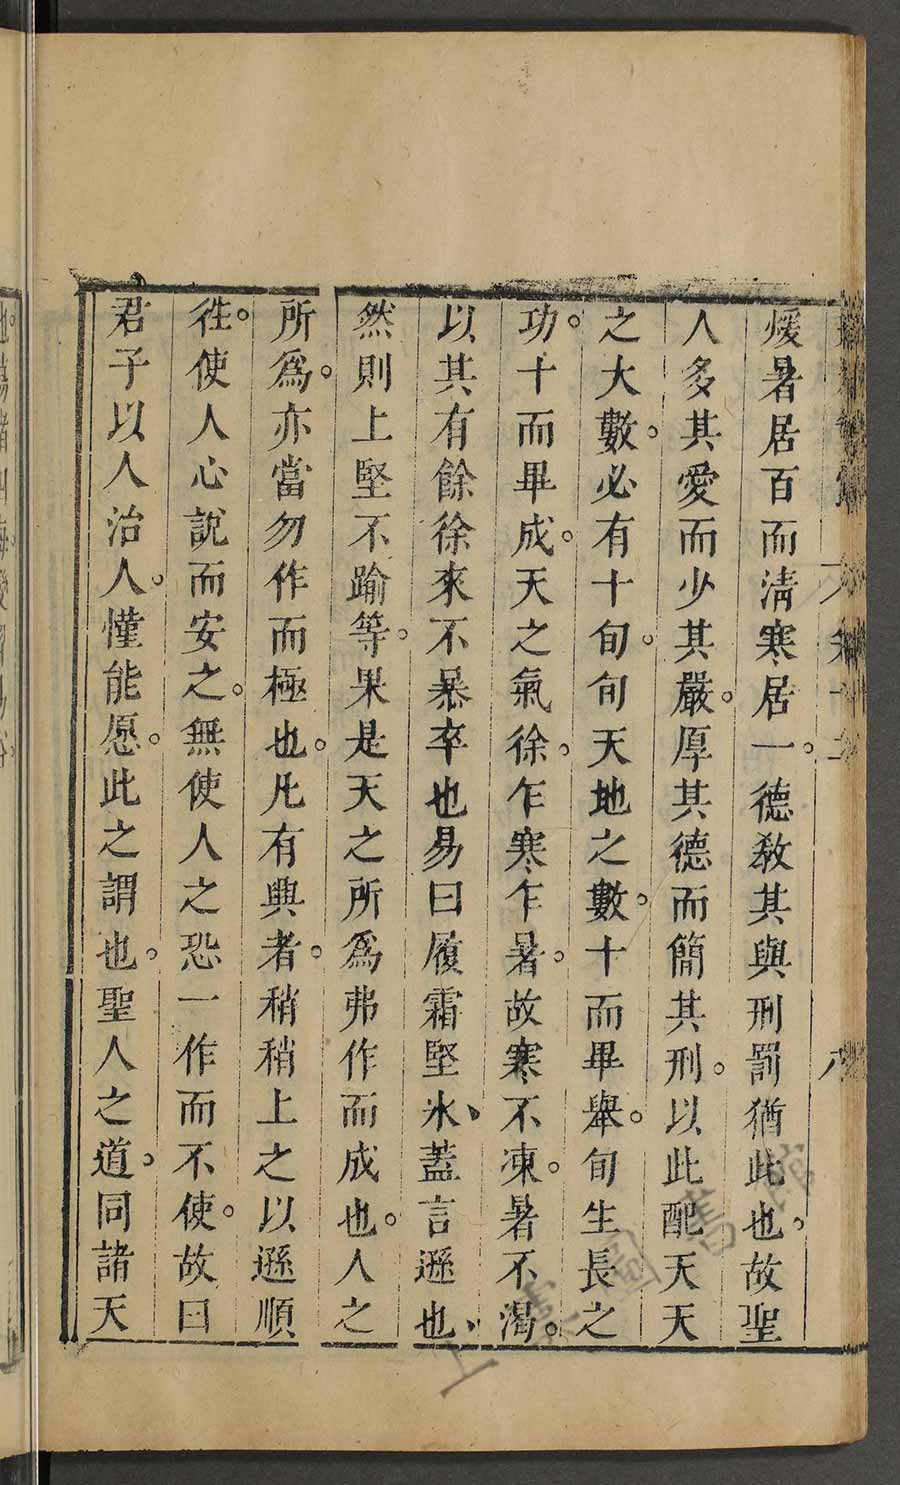 煖暑居百而清寒居一。德教其與刑罰猶此也。故聖
人多其愛而少其嚴。厚其德而簡其刑。以此配天天
之大數。必有十旬。旬天地之數。十而畢舉。旬生長之
功。十而畢成。天之氣徐。乍寒乍暑。故寒不凍。暑不暍。
以其有餘徐來不暴卒也易曰履霜堅氷、蓋言遜也、
然則上堅不踰等。果是天之所爲弗作而成也。人之
所爲。亦當勿作而極也。凡有興者。稍稍上之以遜順
徃。使人心說而安之。無使人之恐一作而不使。故曰
君子以人治人。慬能愿。此之謂也。聖人之道。同諸天